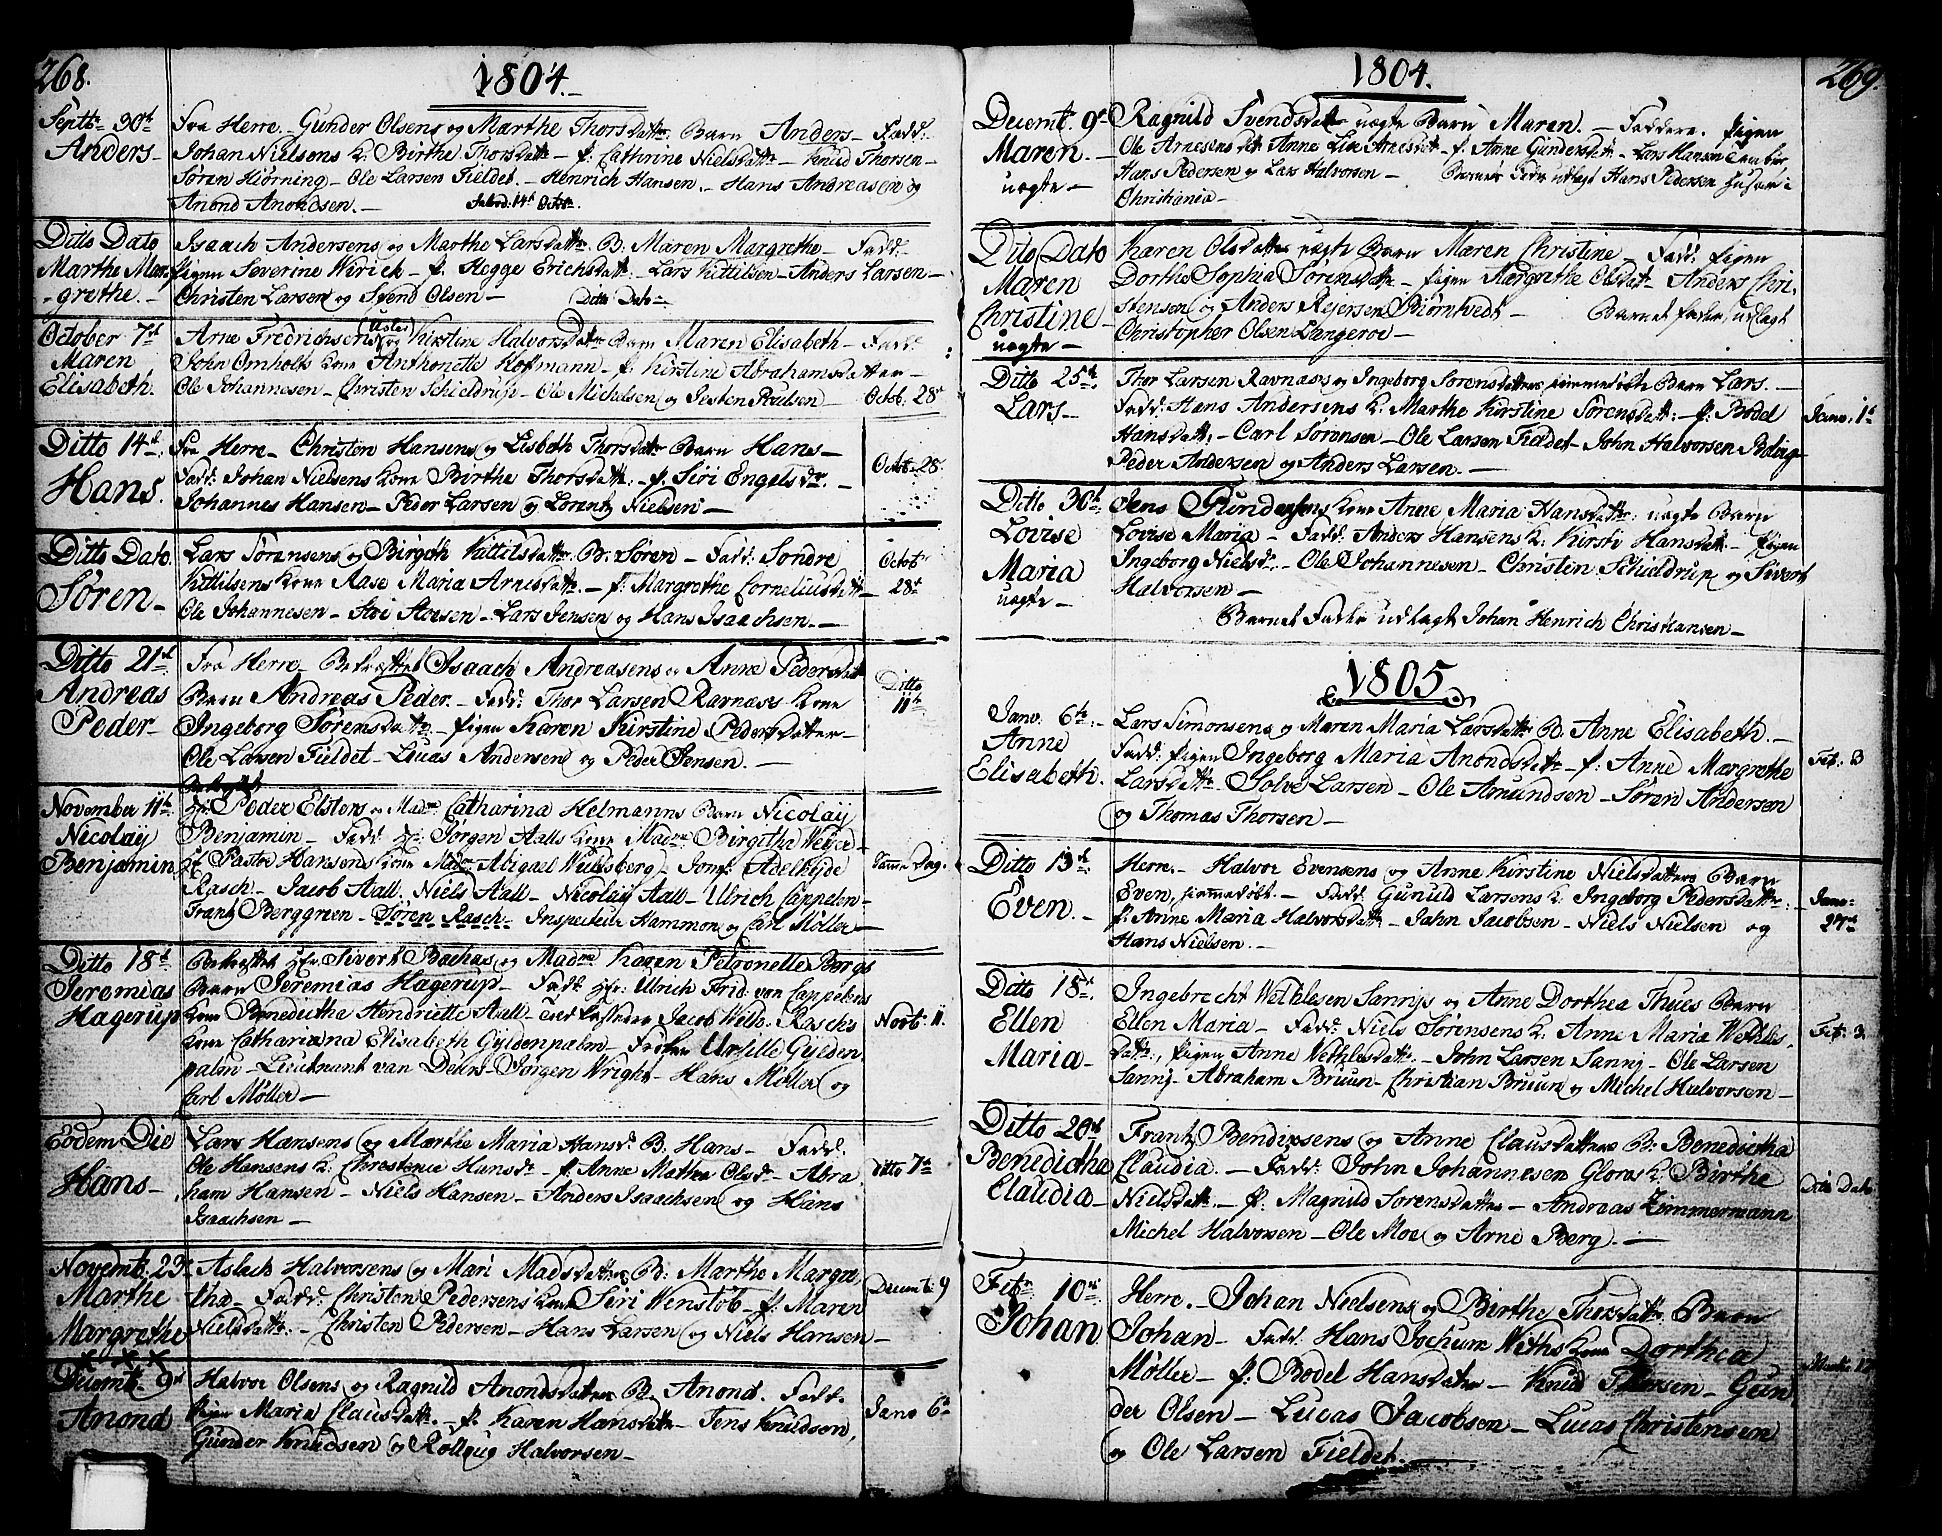 268.
1804.
Septb. 30t
Anders
Fra Herre. Gunder Olsens og Marthe Thorsdatter Barn Anders Fadd:
Johan Nielsens k. Birthe Thorsdatt. p. Cathrine Nielsdatt. Knud Thorsen
Søren Hiørning Ole Larsen Fieldet. Henrich Hansen. Hans Andreasen og
Anond Anondsen.
14t Octob.
Ditto Dato
Marthe Mar-
grethe.
Isaach Andersens og Marthe Larsdatt. B: Maren Margrethe Fadd:
Pigen Severine Wirich p. Hegge Erichsdatt. Lars Kittilsen Anders Larsen
Christen Larsen og Svend Olsen
Ditto Dato
October 7t
Maren
Elisabeth.
Arne Fredrichsens og Kirstine Halvorsdatter Barn Maren Elisabeth Fadd
John Omholts kone Anthonette Hofmann p. Kirstine Abrahamsdatter
Ole Johannesen Christen Schieldrup Ole Michelsen og Jesten Poulsen
Octob. 28t
Ditto 14t
Hans.
Fra Herre Christen Hansens og Lisbeth Thorsdatt. Barn Hans
Fadd: Johan Nielsens kone Birthe Thorsdatt. p. Siri Engelsdr.
Johannes Hansen Peder Larsen og Lorentz Nielsen
Octob. 28.
Ditto Dato.
Søren
Lars Sørensens og Birgeth Kittilsdatt. B. Søren Fadd: Sondre
Kittilsens kone Aase Maria Arnesdatt. p. Margrethe Corneliusdatt
Ole Johannesen Lars Jensen og Hans Isaachsen.
Octob
28t
Ditto 21t
Andreas
Peder
Fra Herre Isaach Andreasens og Anne Pedersdatt
Barn Andreas Peder. Fadd: Thor Larsen Ravnæss kone
Ingeborg Sørensdatt. Pigen Karen Kirstine Pedersdatter
Ole Larsen Fieldet Lucas Andersen og Peder Jensen.
Ditto
11te
November 11te
Nicolay
Benjamin
Hr. Peder Elstens og Madme Catharina Helmanns Barn Nicolay
Benjamin Fadd. Hr. Jørgen Aalls kone Madme Birgitha Weyer
Hr Pastor Hansens kone Madme Abigael Wellsberg Jomf. Adelheide
Rasch Jacob Aall Niels Aall Nicolay Aall Ulrich Cappelen
Frantz Berggreen Søren Rasch Inspecteur Hammon og Carl Møller
Samme Dag.
Ditto 18t
Jeremias
Hagerup
Hr. Sivert Bachas og Madme Karen Petronette Borgs
Barn Jeremias Hagerup Fadd: Hr: Ulrich Frid: von Cappelens
kone Benedictha Hendriette Aall Jacob Weth. Raschs
kone Catharina Elisabeth Gyldenpalm Frøken Ursille Gylden
palm Lieutnant van Deurs Jørgen Wright Hans Møller og
Carl Møller
Novb: 11.
Eodem Die
Hans
Lars Hansens og Marthe Maria Hansd. B. Hans Fadd.
Ole Hansens k. Christence Hansdr p. Anne Mathea Olsdr. Abra
ham Hansen Niels Hansen Anders Isaachsen og Hans
Isaachsen
Ditto 7t
Novemb: 23.
Marthe
Margrethe
Aslach Halvorsens og Mari Madsdatter B. Marthe Margre
tha Fadd. Christen Pedersens kone Siri Wenstøb p. Maren
Nielsdatt. Christen Pedersen Hans Larsen og Niels Hansen
Decemb: 9
Decemb. 9t
Anond
Halvor Olsens og Ragnild Anondsdatter B. Anond. Fadd.
Pigen Maria Clausdatt. p. Karen Hansdatt. Jens Knudsen,
Gunder Knudsen og Rollaug Halvorsen
Janv 6te
1804.
269.
Decemt. 9t
Maren.
uægte
Ragnild Svendsdatter uægte Barn Maren. Faddere. Pigen
Ole Arnesens datt. Anne Lise Arnesdatt p. Anne Gundersdatt. Lars Hansen Tambur
Hans Pedersen og Lars Halvorsen Barnets Fader udlagt Hans Pedersen Husar i
Christiania
Ditto Dato
Maren
Christine
uægte
Karen Olsdatter uægte Barn Maren Christine Fadd: Pigen
Dorthe Sophia Sørensdatt. Pigen Margrethe Olsdatt Anders Chri-
stensen og Anders Rejersen Biørntvedt Barnets Fader udlagt
Christopher Olsen Langeroe
Ditto 25t
Lars
Thor Larsen Ravnæss og Ingeborg Sørensdatters hiemmedøbt Barn Lars.
Fadd: Hans Andersens k. Marthe Kirstine Sørensdatt. p. Bodel
Hansdatt: Carl Sørensen Ole Larsen Fieldet John Halvorsen
Peder Andersen og Anders Larsen.
Janv: 1t
Ditto 30t
Lovise
Maria
uægte
Jens Gundersens kone Anne Maria Hansdatt: uægte Barn
Lovise Maria Fadd: Anders Hansens k. Kirsti Hansdatt. Pigen
Ingeborg Nielsdr. Ole Johannesen Christen Schieldrup og Sivert
Halvorsen
Barnets Fader udlagt Johan Henrich Christiansen
1805
Janv. 6te
Anne
Elisabeth.
Lars Simonsens og Maren Maria Larsdatt. B. Anne Elisabeth.
Fadd: Pigen Ingeborg Maria Anondsdatt p. Anne Margrethe
Larsdatt. Solve Larsen Ole Amundsen Søren Andersen
og Thomas Thorsen
Feb: 3
Ditto 13t
Even.
Herre. Halvor Evensens og Anne Kirstine Nielsdatters Barn
Even, hiemmedøbt Fadd: Gunuld Larsens k. Ingeborg Pedersdatt.
p. Anne Maria Halvorsdatt. Jahn Jacobsen Niels Nielsen og
Hans Nielsen.
Janv.
27t
Ditto 18t
Ellen
Maria
Ingebrecht Wethlesen Sannijs og Anne Dorthea Thues Barn
Ellen Maria Fadd: Niels Sørensens k. Anne Maria Wethles
datt., Pigen Anne Vethlesdatt. John Larsen Sannij Ole Larsen
Sannij Abraham Bruun Christian Bruun og Michel Halvorsen
Feb: 3.
Ditto 20t
Benedictha
Claudia
Frantz Bendixsens og Anne Clausdatters B. Benedictha
Claudia. Fadd: John Johannesen Gloras k. Birthe
Nielsdatt. p. Magnild Sørensdatter Andreas Zimmermann
Michel Halvorsen Ole Moe og Arne Berg.
Dito Dato
Feb. 10de
Johan
Herre. Johan Nielsens og Birthe Thorsdatt. Barn
Johan Fadd. Hans Jochum Weths kone Dorthea
Møller p. Bodel Hansdatter Knud Thorsen Gun
der Olsen Lucas Jacobsen Lucas Christensen
og Ole Larsen Fieldet.